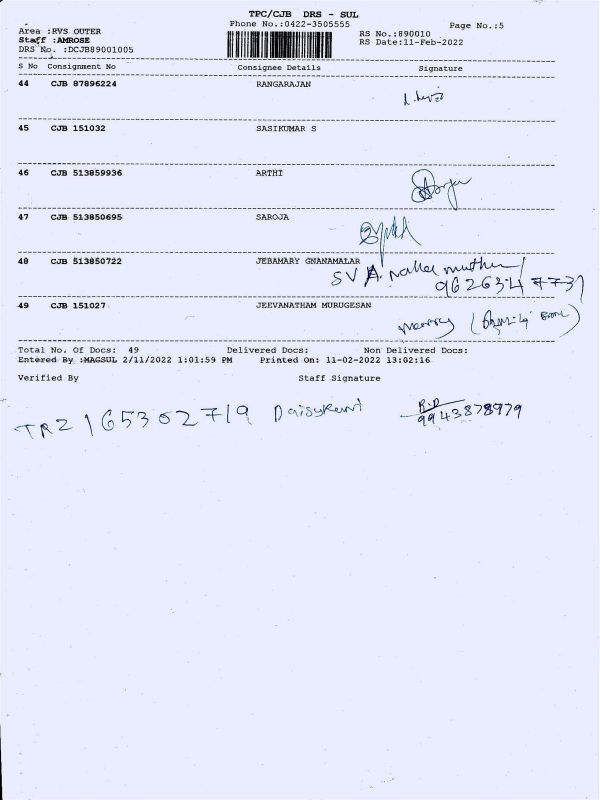 TPC/CJB DRS - SUL
Phone No.:0422-3505555
Page No.:5
Area :RVS OUTER
Staff :AMROSE
DRS No. :DCJB89001005
RS No.:890010
RS Date:11-Feb-2022
S No Consignment No Consignee Details Signature
44 CJB 87896224 RANGARAJAN
45 CJB 151032 SASIKUMAR S
46 CJB 513859936 ARTHI
47 CJB 513850695 SAROJA
48 CJB 513850722 JEBAMARY GNANAMALAR
SV
9626347731
49 CJB 151027 JEEVANATHAM MURUGESAN
Total No. Of Docs: 49 Delivered Docs: Non Delivered Docs:
Entered By :MAGSUL 2/11/2022 1:01:59 PM Printed On: 11-02-2022 13:02:16
Verified By Staff Signature
TRZ 165302719 Daisykani
9943878979